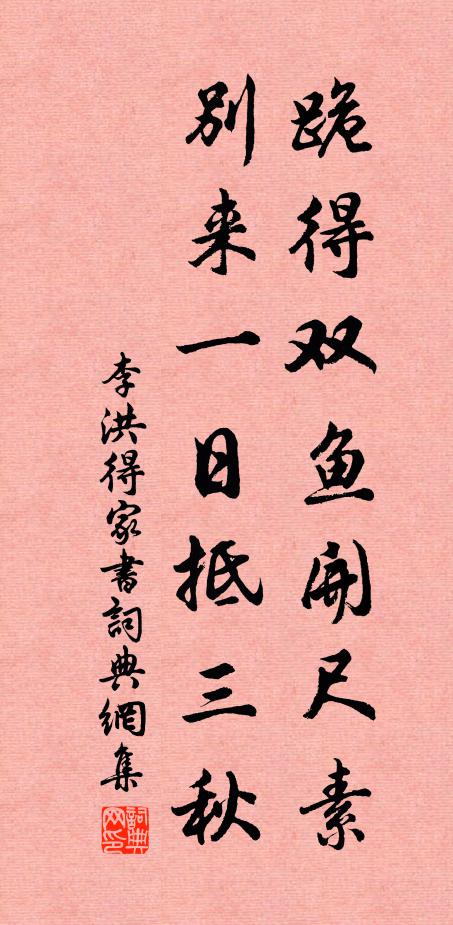 跪得双鱼開尺素
别来一日抵三秋
李洪得家書詞典網集
詞典网印